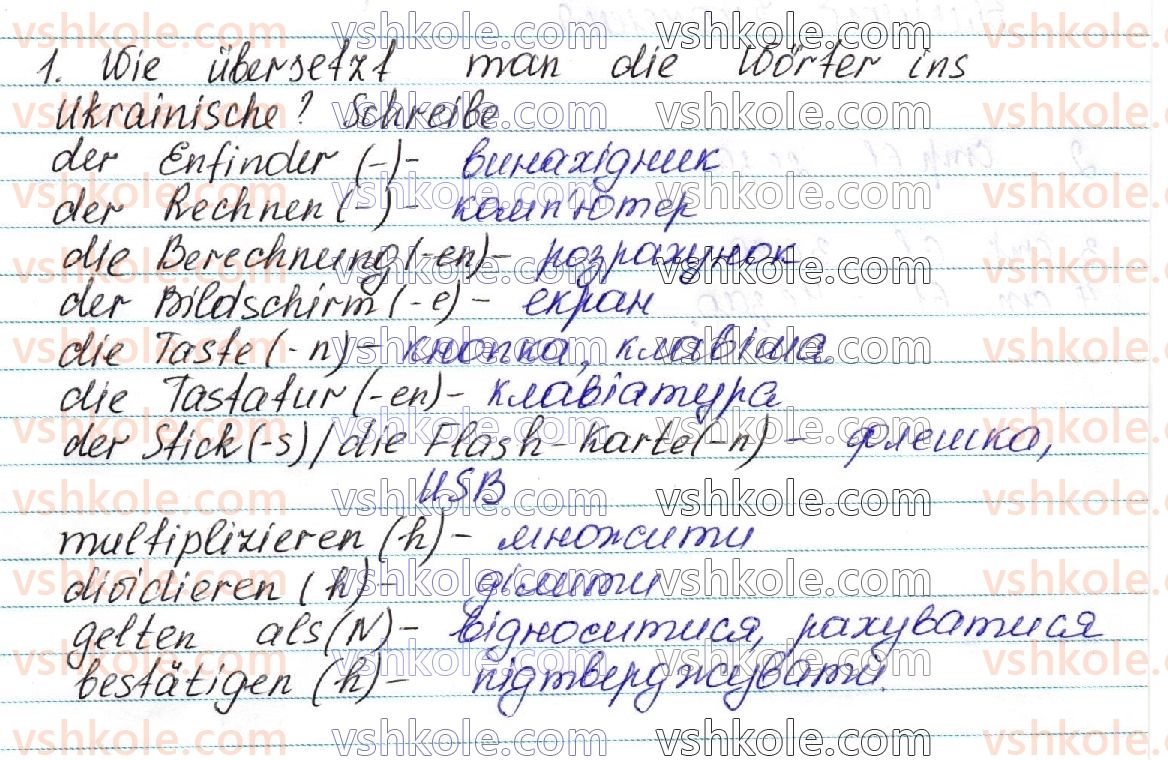 1. Wie übersetzt man die Wörter ins
Ukrainische? Schreibe
der Enfinder (-) - винахідник
der Rechnen (-) - комп'ютер
die Berechnung (-en) - розрахунок
der Bildschirm (-e) - екран
die Taste (-n) - кнопка, клавіша
die Tastatur (-en) - клавіатура
der Stick (-s) / die Flash-Karte (-n) - флешка,
USB
multiplizieren (h) - множити
dividieren (h) - ділити
gelten als (N) - відноситися, рахуватися
bestätigen (h) - підтверджувати.